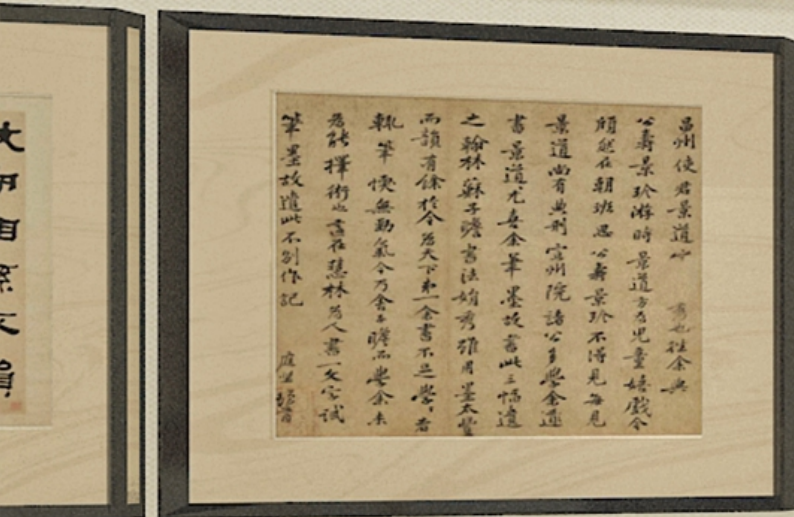 昌州使君景道宗秀也往余與
公壽景珍游時景道方為兒童嬉戲今
頎然在朝班思公壽景珍不得見每見
景道尚有典刑宣州院諸公多學余
書景道尤喜余筆墨故書此三幅遺
之翰林蘇子瞻書法娟秀雖用墨太豐
而韻有餘於今為天下第一余書不足學學者
輒筆愞無勁氣今乃舍子瞻而學余未
為能擇術也適在慧林為人書一文字試
筆墨故遣此不別作記 庭堅頓首